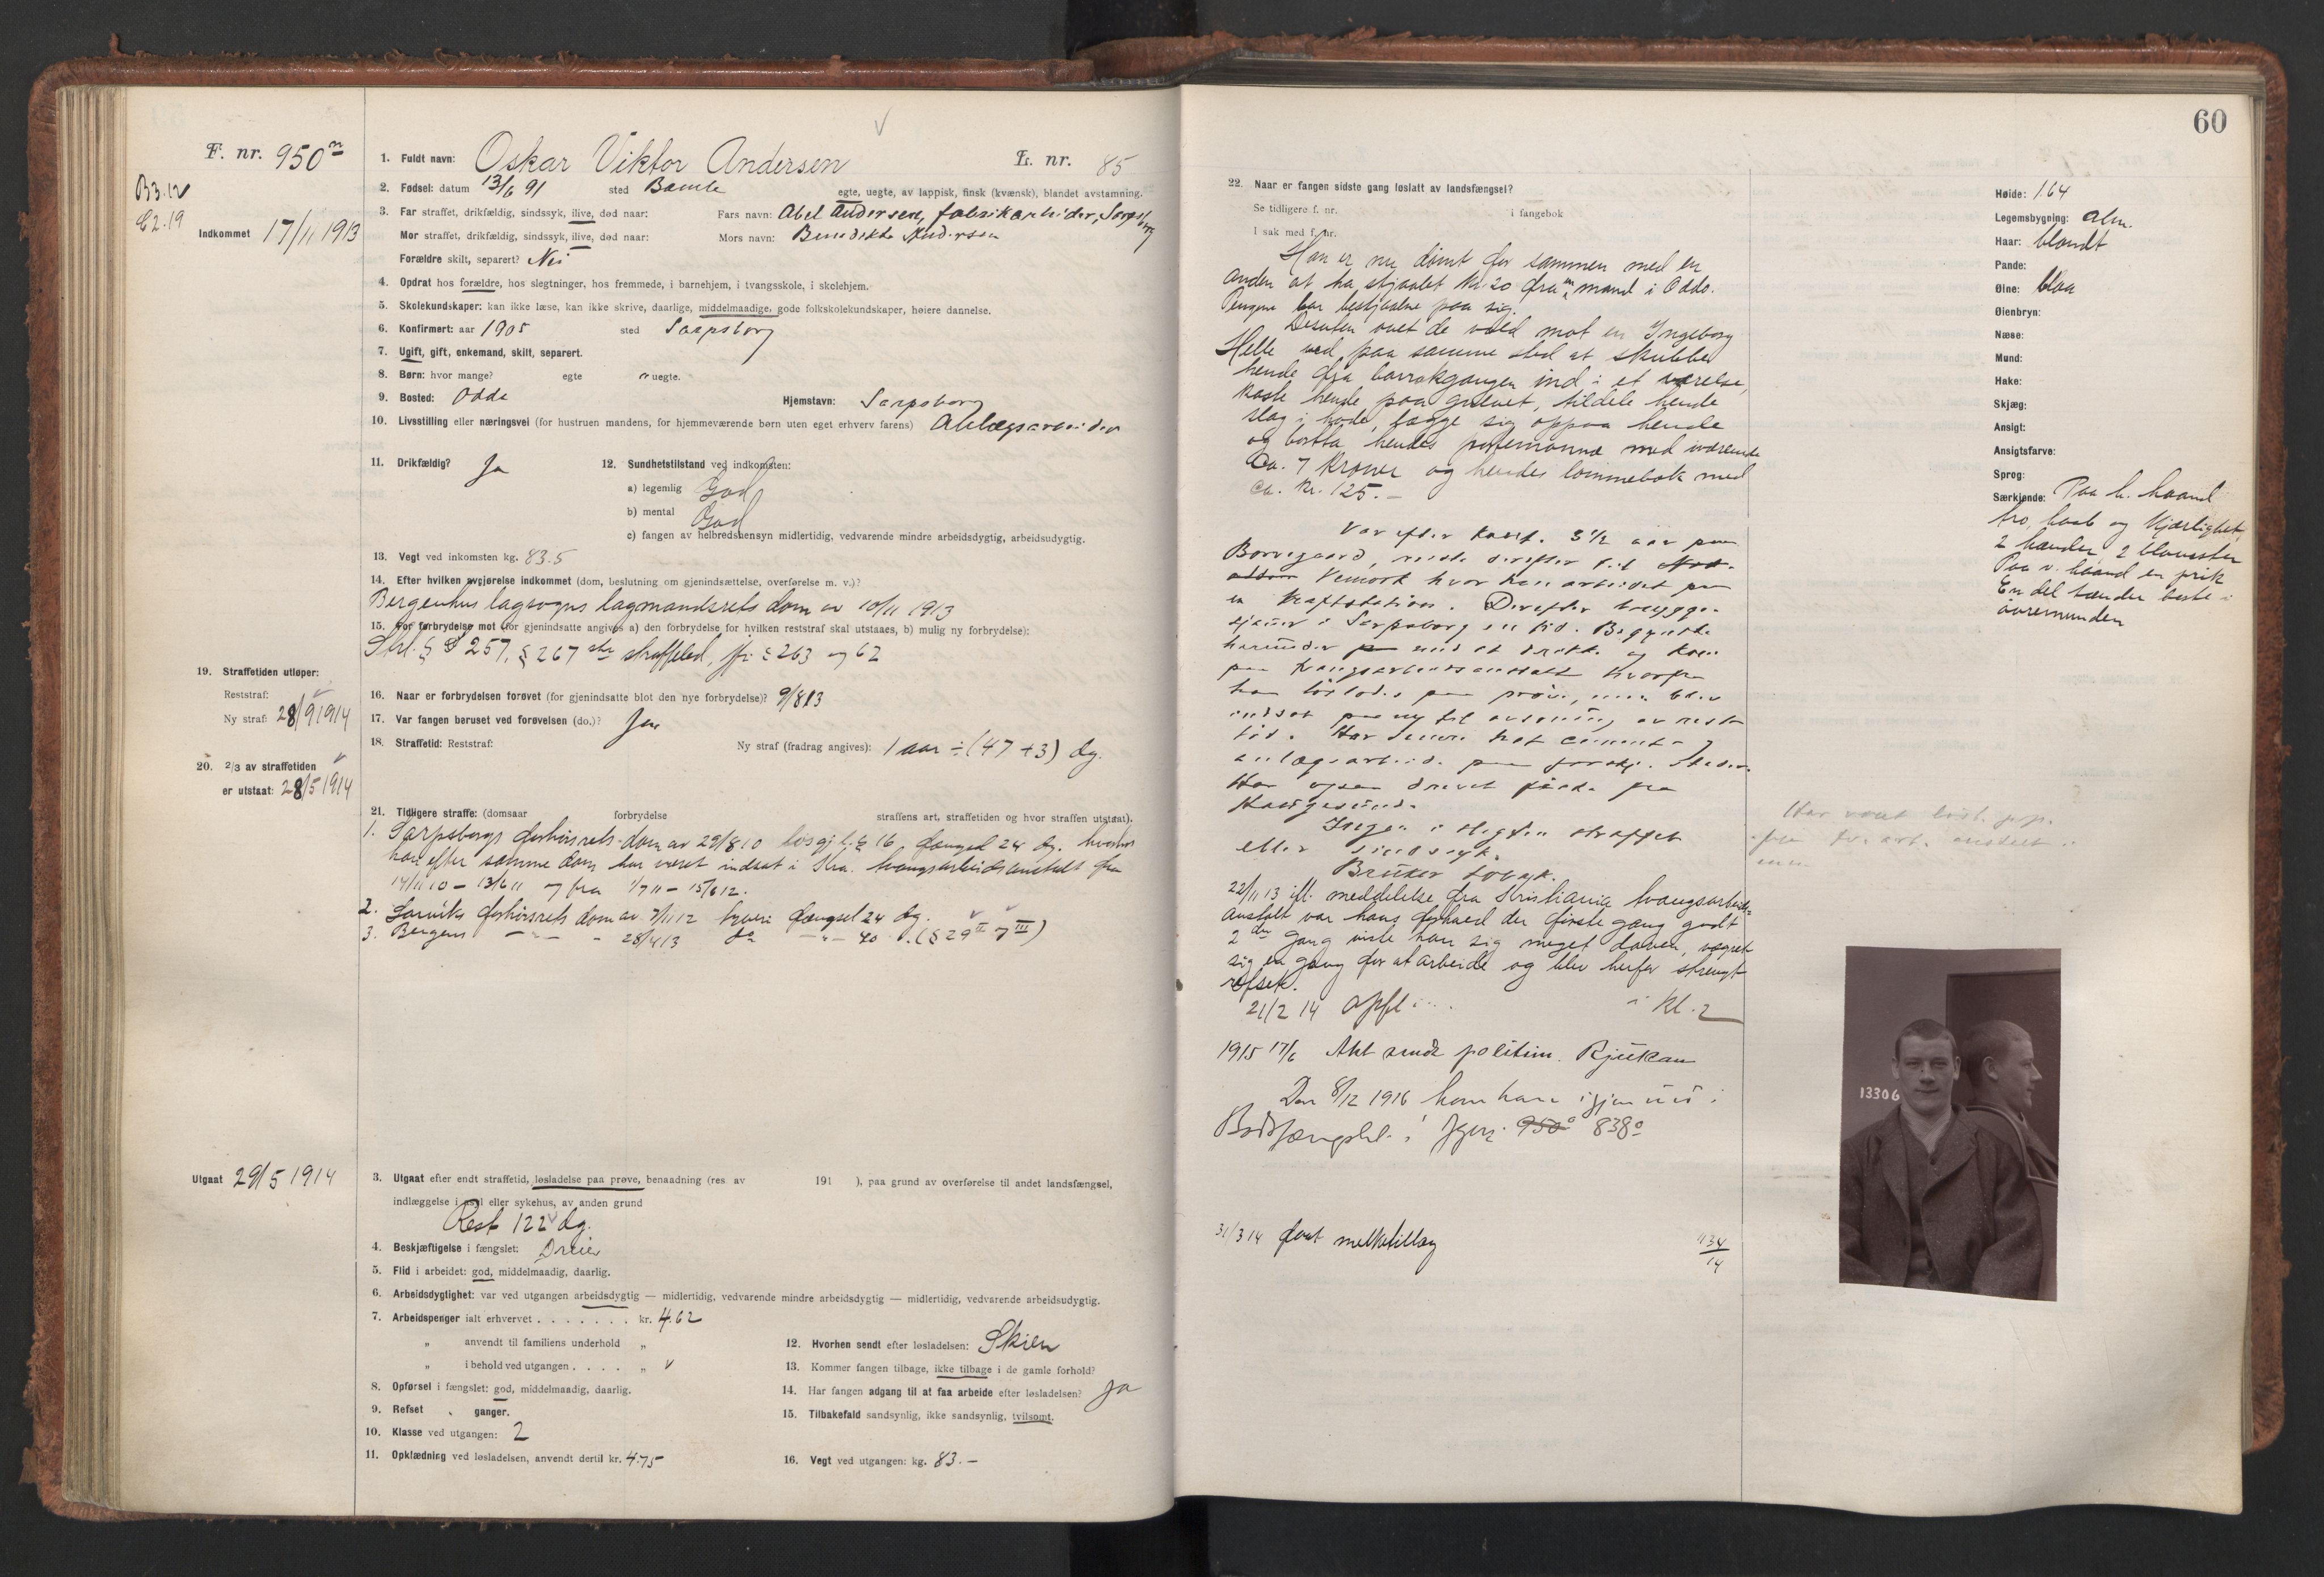 F. nr. 950 m
B3.12
C2.19
Indkommet 17/11 1913
1. Fuldt navn: Oskar Viktor Andersen L. nr. 85
2. Fødsel: datum 13/6 91 sted Bamle egte, uegte, av lappisk, finsk (kvænsk), blandet avstamning.
3. Far straffet, drikfældig, sindssyk, ilive, død naar: Fars navn: Abel Andersen, fabrikarbeider, Sarpsborg
Mor straffet, drikfældig, sindssyk, ilive, død naar: Mors navn: Benedikte Andersen
Forældre skilt, separert? Nei
4. Opdrat hos forældre, hos slegtninger, hos fremmede, i barnehjem, i tvangsskole, i skolehjem.
5. Skolekundskaper: kan ikke læse, kan ikke skrive, daarlige, middelmaadige, gode folkskolekundskaper, høiere dannelse.
6. Konfirmert: aar 1905 sted Sarpsborg
7. Ugift, gift, enkemand, skilt, separert.
8. Børn: hvor mange? egte " uegte.
9. Bosted: Odda Hjemstavn: Sarpsborg
10. Livsstilling eller næringsvei (for hustruen mandens, for hjemmeværende børn uten eget erhverv farens) Anlægsarbeider
11. Drikfældig? Ja 12. Sundhetstilstand ved indkomsten:
a) legemlig God
b) mental God
c) fangen av helbredshensyn midlertidig, vedvarende mindre arbeidsdygtig, arbeidsudygtig.
13. Vegt ved inkomsten kg. 83.5
14. Efter hvilken avgjørelse indkommet (dom, beslutning om gjenindsættelse, overførelse m. v.)?
Bergenhus lagsogns lagmandsrets dom av 10/11 1913
15. For forbrydelse mot (for gjenindsatte angives a) den forbrydelse for hvilken reststraf skal utstaaes, b) mulig ny forbrydelse):
Strl. § 257, § 267 straffeled, jfr. § 263 og 62
19. Straffetiden utløper:
Reststraf:
Ny straf: 28/9 1914
16. Naar er forbrydelsen forøvet (for gjenindsatte blot den nye forbrydelse)? 9/8 13
17. Var fangen beruset ved forøvelsen (do.)? Ja
18. Straffetid: Reststraf: Ny straf (fradrag angives): 1 aar ÷ (47 + 3) dg.
20. 2/3 av straffetiden
er utstaat: 28/5 1914
21. Tidligere straffe: (domsaar forbrydelse straffens art, straffetiden og hvor straffen utstaat).
1. Sarpsborgs forhørsrets dom av 29/8 10 løsgj.l. § 16 fængsel 24 dg. hvorhos
han efter samme dom har været indsat i Kra. tvangsarbeidsanstalt fra
14/11 10 – 13/6 11 og fra 1/7 11 – 15/6 12.
2. Larviks forhørsrets dom av 7/11 12 tyveri fængsel 24 dg.
3. Bergens – " – - 28/4 13 do – " – 40 . (§ 29 II 7 III)
Utgaat 29/5 1914
3. Utgaat efter endt straffetid, løsladelse paa prøve, benaadning (res. av 191 ), paa grund av overførelse til andet landsfængsel,
indlæggelse i asyl eller sykehus, av anden grund
Rest 122 dg.
4. Beskjæftigelse i fængslet: Dreier
5. Flid i arbeidet: god, middelmaadig, daarlig.
6. Arbeidsdyglighet: var ved utgangen arbeidsdygtig — midlertidig, vedvarende mindre arbeidsdygtig — midlertidig, vedvarende arbeidsudygtig.
7. Arbeidspenger ialt erhvervet . . . . . . . kr. 4.62
" anvendt til familiens underhold "
" i behold ved utgangen . . . . "
8. Opførsel i fængslet: god, middelmaadig, daarlig.
9. Refset ganger.
10. Klasse ved utgangen: 2
11. Opklædning ved løsladelsen, anvendt dertil kr. 4.75
12. Hvorhen sendt efter løsladelsen: Skien
13. Kommer fangen tilbage, ikke tilbage i de gamle forhold?
14. Har fangen adgang til at faa arbeide efter løsladelsen? Ja
15. Tilbakefald sandsynlig, ikke sandsynlig, tvilsomt.
16. Vegt ved utgangen: kg. 83.-
60
22. Naar er fangen sidste gang løslatt av landsfængsel?
Se tidligere f. nr. i fangebok
I sak med f. nr.
Han er nu dømt for sammen med en
anden at ha stjaalet kr. 20 fra en mand i Odda.
Pengene bar bestjaalne paa sig.
Desuten øvet de vold mot en Ingeborg
Helle ved paa samme sted at skubbe
hende fra barrakgangen ind i et værelse,
kaste hende paa gulvet, tildele hende
slag i hodet, lægge sig oppaa hende
og borttа hendes portemonnæ med iværende
Ca. 7 kroner og hendes lommebok med
ca. kr. 125.–
Var efter konf. 3 1/2 aar paa
Borregaard, reiste derefter til
Vemork hvor han arbeidet paa
en kraftstation. Derefter brygge-
sjauer i Sarpsborg en tid. Begyndte
herunder med at drikke og kom
paa tvangsarbeidsanstalt hvorfra
han løslodes paa prøve, men blev
indsat paa ny til avsoning av rest-
tid. Har senere hat cement- og
anlægsarbeide paa forskj. steder.
Har ogsaa drevet fiske fra
Haugesund.
Ingen i slegten straffet
eller sindssyk.
Bruker tobak.
22/11 13 ifl. meddelelse fra Kristiania tvangsarbeids-
anstalt var hans forhold der første gang godt
2 den gang viste han sig meget doven, vægret
sig en gang for at arbeide og blev herfor strengt
refset.
21/2 14 opfl. i kl. 2
1915 17/6 Akt sendt politim. Rjukan
Den 8/12 1916 kom han igjen ind i
Botsfængslet i 950 o 838 o
31/3 14 faat melketillæg
Høide: 1.64
Legemsbygning: alm.
Haar: blondt
Pande:
Øine: blaa
Øienbryn:
Næse:
Mund:
Hake:
Skjæg:
Ansigt:
Ansigtsfarve:
Sprog:
Særkjende: Paa h. haand
tro, haab og kjærlighet,
2 hænder, 2 blomster
Paa v. haand en prik
En del tænder borte i
overmunden
Har været
13306